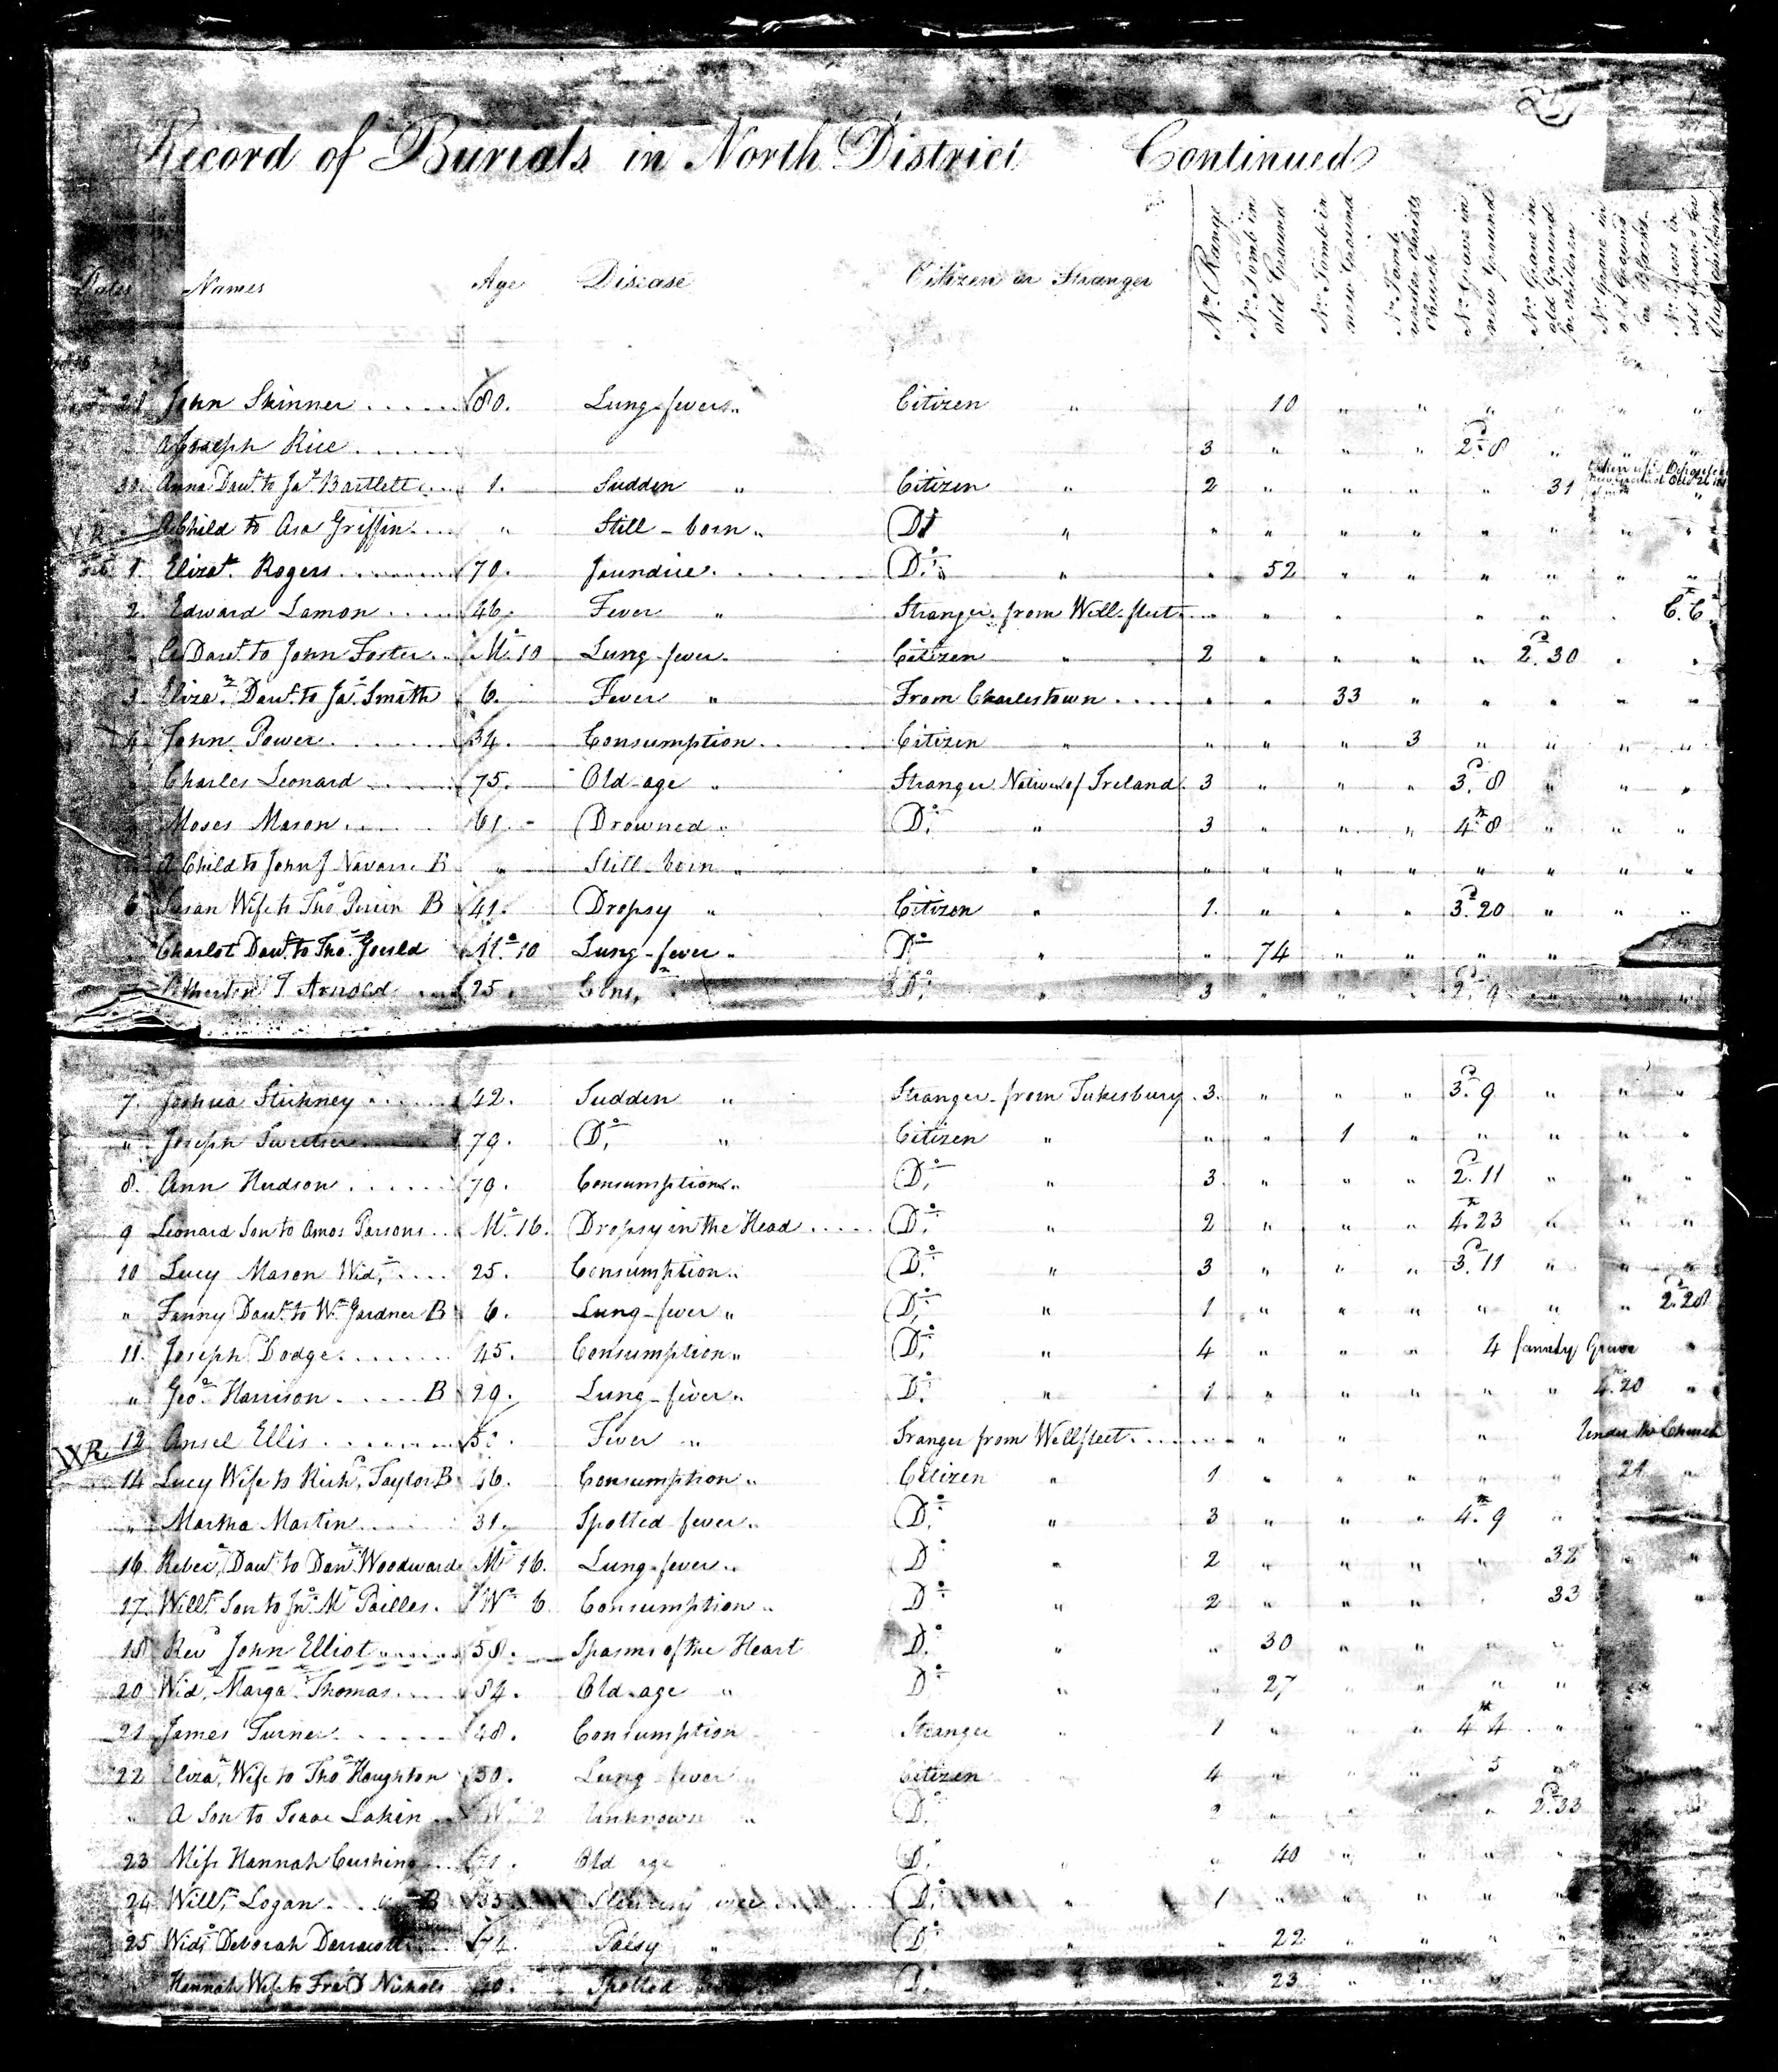 Record of Burials in North District Continued
Dates Names Age Disease Citizen or Stranger No. Range No. Tomb in old Ground No. Tomb in new Ground No. Tomb under Christs Church No. Grave in new Ground No. Grave in old Ground for children No. Grave in old Ground for Blacks No. Grave in old
John Skinner ..... 80. Lung-fever " Citizen " 10 " " " " "
Joseph Rice ..... 3 " " " 2d. 8 " " "
30 Anna Daur. to Jas. Bartlett ... 1. Sudden " Citizen " 2 " " " " 31
A Child to Asa Griffin .... " Still-born " Do " " " " " " " " "
1. Elizath. Rogers ........ 70. Jaundice ..... Do. " " 52 " " " " "
2. Edward Lamon .... 46. Fever " Stranger from Wellfleet ... " " " " " C. C.
" A Daur. to John Foster .. Mo. 10 Lung-fever. Citizen " 2 " " " " 2d. 30 " "
3. Eliza. Daur. to Jas. Smith 6. Fever " From Charlestown ..... " " 33 " " " " "
4 John Power ....... 34. Consumption .. Citizen " " " " 3 " " " "
Charles Leonard ..... 75. Old-age " Stranger Native of Ireland. 3 " " " 3d. 8 " " "
Moses Mason .... 61. - Drowned " Do. " 3 " " " 4th. 8 " " "
A Child to John J Navarre B " Still-born " " " " " " " " " "
6 Susan Wife to Thos. B 41. Dropsy " Citizen " 1. " " " 3d. 20 " " "
Charlot Daur. to Thos. Gould Mo. 10 Lung-fever " Do " " 74 " " " "
T Arnold ... 25. Do. " 3 " " " 2d. 9 " " "
7. Joshua Stickney ...... 42. Sudden " Stranger from Tukesbury . 3. " " " 3d. 9 " " "
" Joseph Sweetser 79. Do. " Citizen " " " 1 " " " " "
8. Ann Hudson ...... 79. Consumption " Do. " 3 " " " 2d. 11 " " "
9 Leonard Son to Amos Parsons .. Mo. 16. Dropsy in the Head .... Do. " 2 " " " 4th. 23 " " "
10 Lucy Mason Wido. .... 25. Consumption " Do. " 3 " " " 3d. 11 " " "
" Fanny Daur. to Wm. Gardner B 6. Lung-fever " Do. " 1 " " " " " " 2d. 28
11. Joseph Dodge ....... 45. Consumption " Do. " 4 " " " 4 family Grave "
" Geo. Harrison ..... B 29. Lung-fever " Do. " 1 " " " " " 4th. 20 "
WR 12 Ansel Ellis ........ Fever " Sranger from Wellfleet ....... " " " Under the Church
14 Lucy Wife to Richd. Taylor B 46. Consumption " Citizen " 1 " " " " " 21 "
" Martha Martin .... 31. Spotted-fever " Do. " 3 " " " 4th. 9 "
16 Rebeca. Daur. to Danl. Woodward Mo. 16. Lung-fever " Do " 2 " " " " 32 " "
17. Willm. Son to Jno. Mc Pailles. Ws. 6. Consumption " Do. " 2 " " " " 33 "
18 Revd. John Elliot ....... 58. Spasms of the Heart Do. " " 30 " " " "
20 Wido. Marga. Thomas ..... 84. Old-age " Do " " 27 " " " "
21 James Turner ...... 48. Consumption Stranger " 1 " " " 4th 4 " "
22 Eliza. Wife to Thos. Houghton 50. Lung fever " Citizen 4 " " " 5 "
" A Son to Isaac Lakin Ws. 2 Unknown " Do. " 2 " " " 2d. 33
23 Miss Hannah Cushing .. 71. Old age Do. " " 40 " " " "
24 Willm. Logan ... B 35. Do. " 1 " " " " "
25 Wido. Deborah 74. Palsy " Do. " " 22 " " " "
Hannah Wife to Nichols 40. Spotted Do. 23 " "